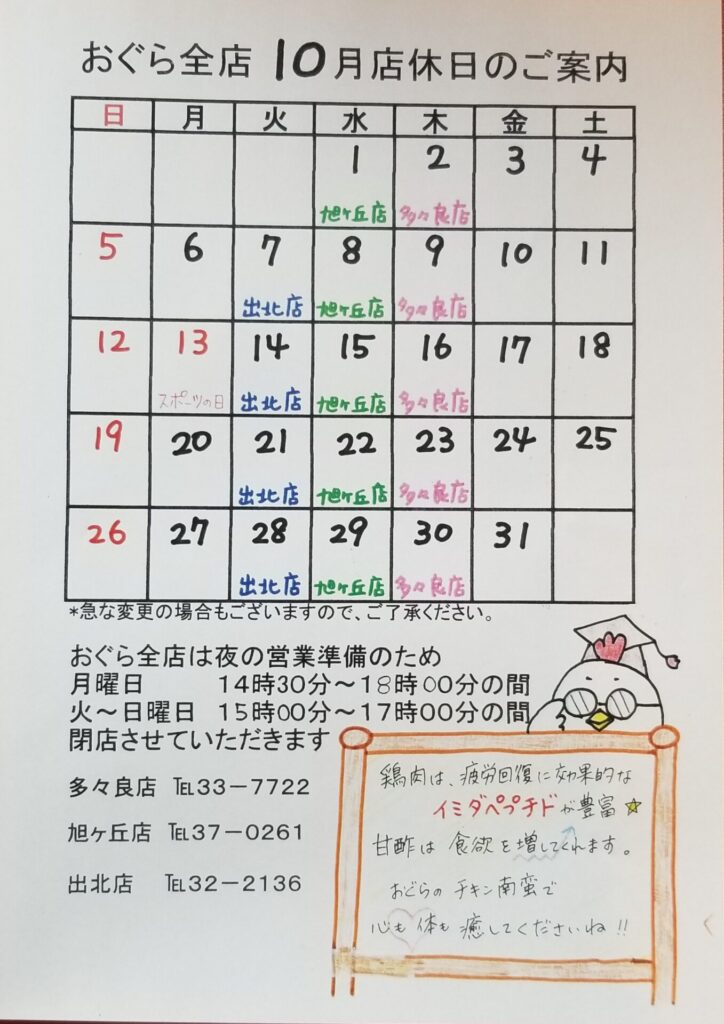 おぐら全店 10月店休日のご案内
日 月 火 水 木 金 土
1 2 3 4
旭ヶ丘店 多々良店
5 6 7 8 9 10 11
出北店 旭ヶ丘店 多々良店
12 13 14 15 16 17 18
スポーツの日 出北店 旭ヶ丘店 多々良店
19 20 21 22 23 24 25
出北店 旭ヶ丘店 多々良店
26 27 28 29 30 31
出北店 旭ヶ丘店 多々良店
*急な変更の場合もございますので、ご了承ください。
おぐら全店は夜の営業準備のため
月曜日 14時30分〜18時00分の間
火〜日曜日 15時00分〜17時00分の間
閉店させていただきます
多々良店 ℡33−7722
旭ヶ丘店 ℡37−0261
出北店 ℡32−2136
鶏肉は、疲労回復に効果的な
イミダペプチドが豊富
甘酢は食欲を増してくれます。
おぐらのチキン南蛮で
心も体も癒してくださいね!!